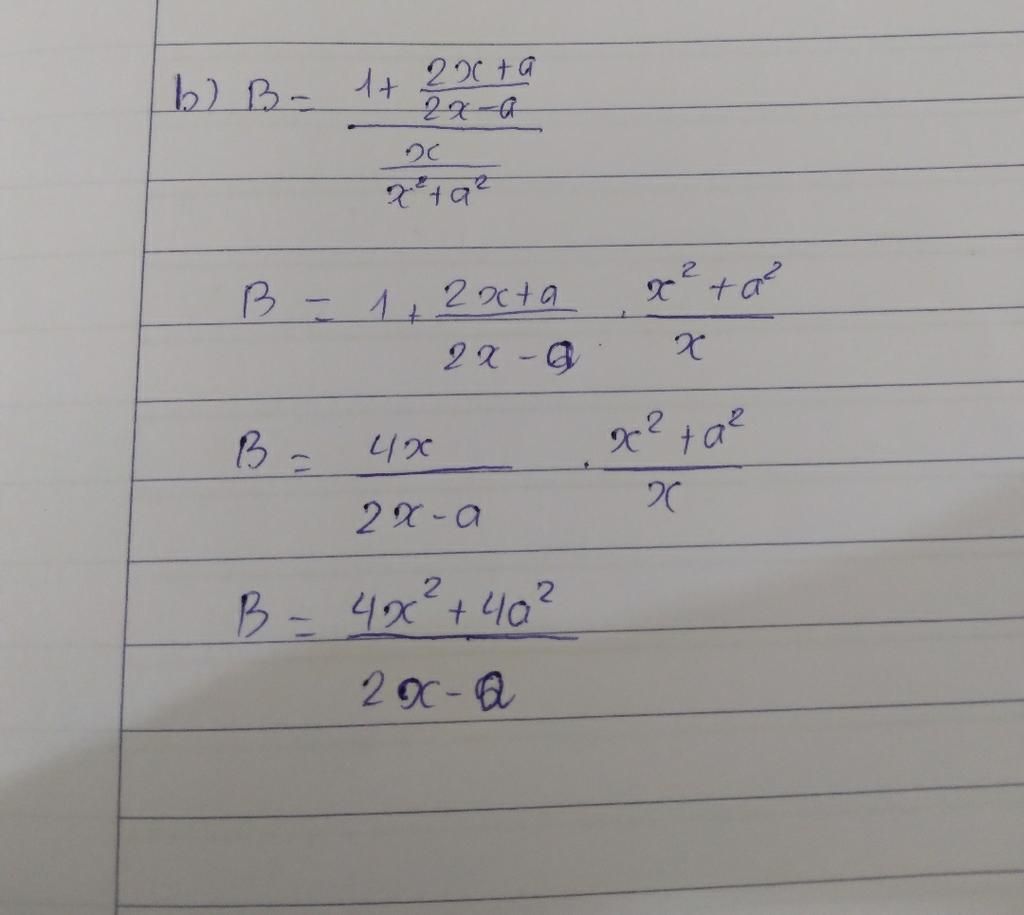 b) B = (1 + (2x + a)/(2x - a))/(x/(x² + a²))
B = 1 + (2x + a)/(2x - a) . (x² + a²)/x
B = 4x/(2x - a) . (x² + a²)/x
B = (4x² + 4a²)/(2x - a)